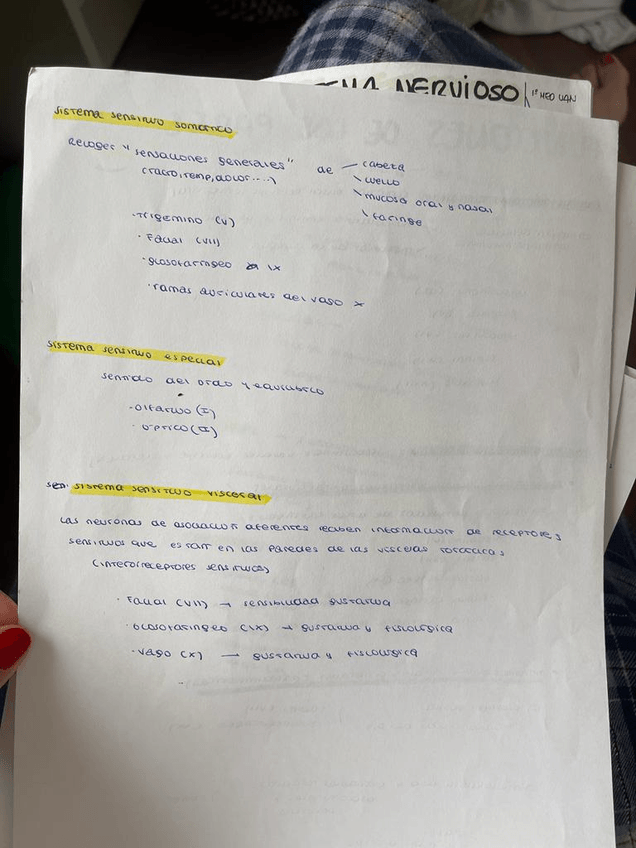 NERVIOSO 1º MED UAN
SISTEMA SENSITIVO SOMÁTICO
Recoger "sensaciones generales" de — cabeza
(tacto, temp, dolor....) \ cuello
\ mucosa oral y nasal
\ faringe
· Trigemino (V)
· Facial (VII)
· glosofaríngeo IX
· ramas auriculares del vago X
SISTEMA SENSITIVO ESPECIAL
sentido del oído y equilibrio
· olfativo (I)
· óptico (II)
SISTEMA SENSITIVO VISCERAL
Las neuronas de asociación aferentes reciben información de receptores
sensitivos que están en las paredes de las vísceras torácicas
(interorreceptores sensitivos)
· Facial (VII) → sensibilidad gustativa
· Glosofaríngeo (IX) → gustativa y fisiológica
· Vago (X) → gustativa y fisiológica